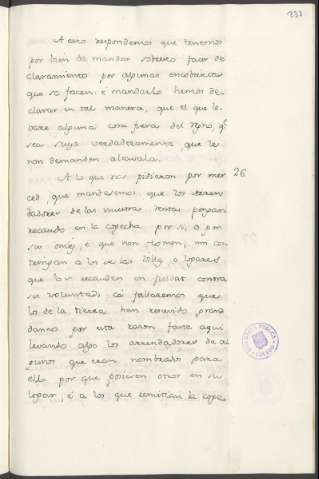 237
A esto respondemos que tenemos
por bien de mandar sobrello facer de
claramiento por algunas encobiertas
que se facen: e mandarlo hemos de
clarar en tal manera, que el que le
vare alguna cosa fuera del Regno, q.e
sea suyo verdaderamente que le
non demanden alcavala.
A lo que nos pidieron por mer 26
ced que mandasemos que los arren
dadores de las nuestras rentas pongan
recaudo en la cogecha por si, o por
sus omes, e que non tomen, nin cos
tringan a los de las villas o logares
que lo recauden en fieldat contra
su voluntad; ca fallaremos que
los de la tierra han recevido grand
danno por esta razon, fasta aqui
levando algo los arrendadores de al
gunos que eran nombrados para
ello por que posiesen otros en su
logar; e a los que remitian la coge